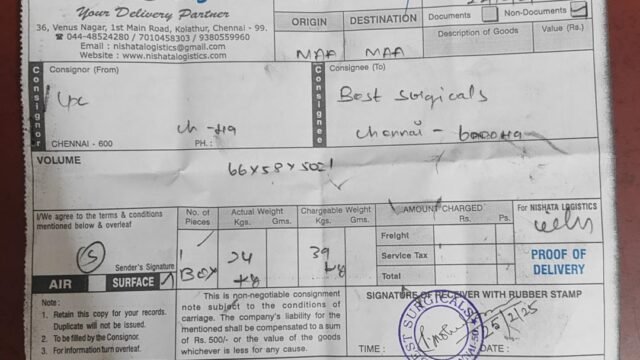 Your Delivery Partner
36, Venus Nagar, 1st Main Road, Kolathur, Chennai - 99.
☎ 044-48524280 / 7010458303 / 9380559960
Email : nishatalogistics@gmail.com
Website : www.nishatalogistics.com
ORIGIN
DESTINATION
MAA
MAA
Documents
Non-Documents ✓
Description of Goods
Value (Rs.)
Consignor
Consignor (From)
Ch - 49
CHENNAI - 600
PH. :
Consignee
Consignee (To)
Best Surgicals
Chennai -
VOLUME
66x58x50
I/We agree to the terms & conditions
mentioned below & overleaf
Sender's Signature
AIR
SURFACE
No. of
Pieces
1
BOX
Actual Weight
Kgs. Gms.
24
kg
Chargeable Weight
Kgs. Gms.
39
kg
AMOUNT CHARGED
Rs. Ps.
Freight
Service Tax
Total
For NISHATA LOGISTICS
PROOF OF
DELIVERY
Note :
1. Retain this copy for your records.
Duplicate will not be issued.
2. To be filled by the Consignor.
3. For information turn overleaf.
This is non-negotiable consignment
note subject to the conditions of
carriage. The company's liability for the
mentioned shall be compensated to a sum
of Rs. 500/- or the value of the goods
whichever is less for any cause.
SIGNATURE OF RECEIVER WITH RUBBER STAMP
BEST SURGICALS
TIME :
DATE :